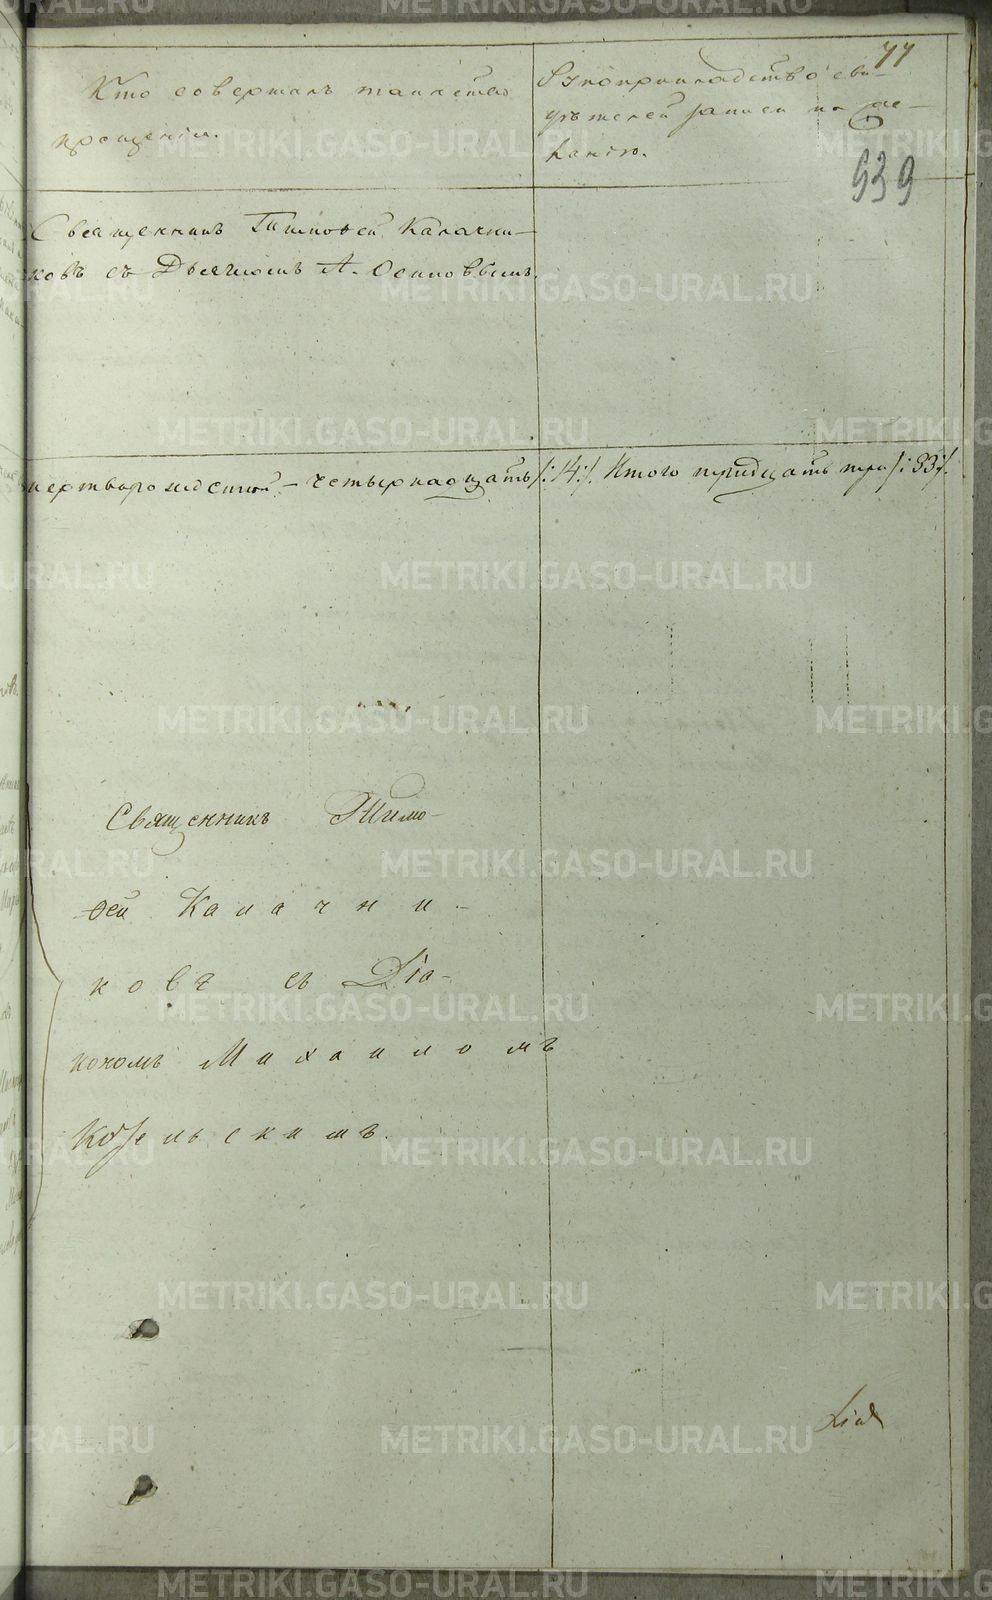 77
Кто совершалъ таинство
крещенія.
Рукоприкладство сви-
дѣтелей записи по же-
ланію.
939
Священникъ Тимоѳей Калачни-
ковъ съ Дьячкомъ А. Осиповымъ.
мертворожденной – четырнадцать /:14:/. Итого тридцать три /:33:/.
Священникъ Тимо-
ѳей Калачни-
ковъ съ Діа-
кономъ Михаиломъ
Козельскимъ.
METRIKI.GASO-URAL.RU